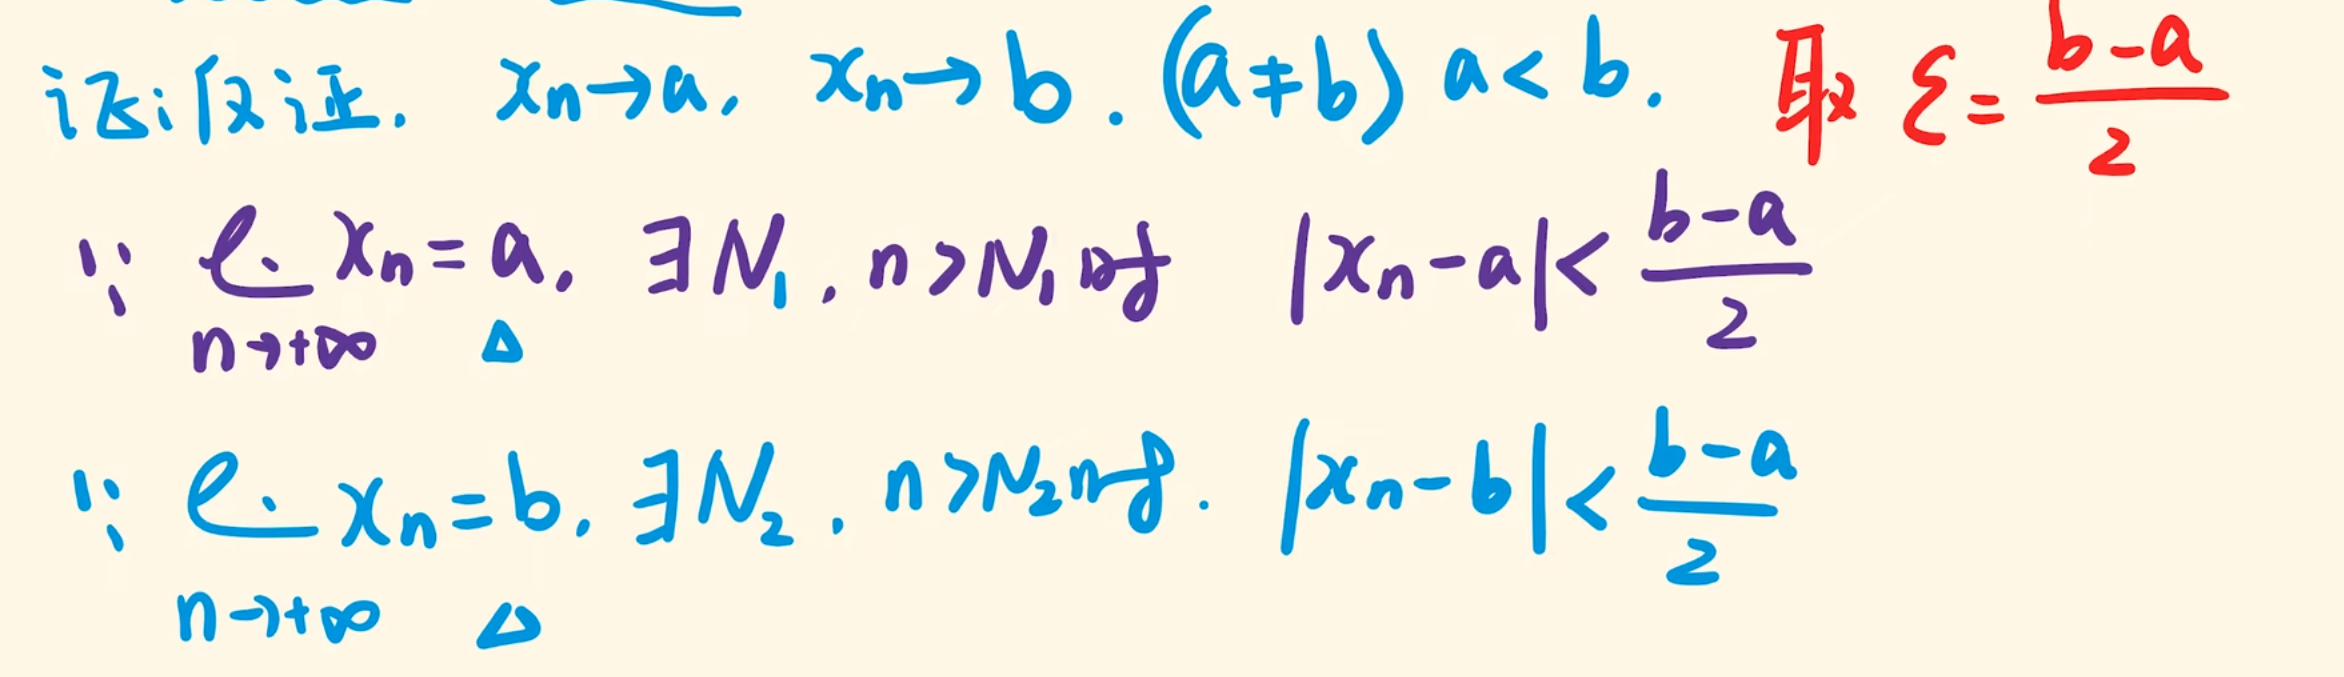 证:反证. xn→a, xn→b. (a≠b) a<b. 取 ε=(b-a)/2
∵ lim n→+∞ xn=a, ∃N1, n>N1时 |xn-a|<(b-a)/2
∵ lim n→+∞ xn=b, ∃N2, n>N2时. |xn-b|<(b-a)/2